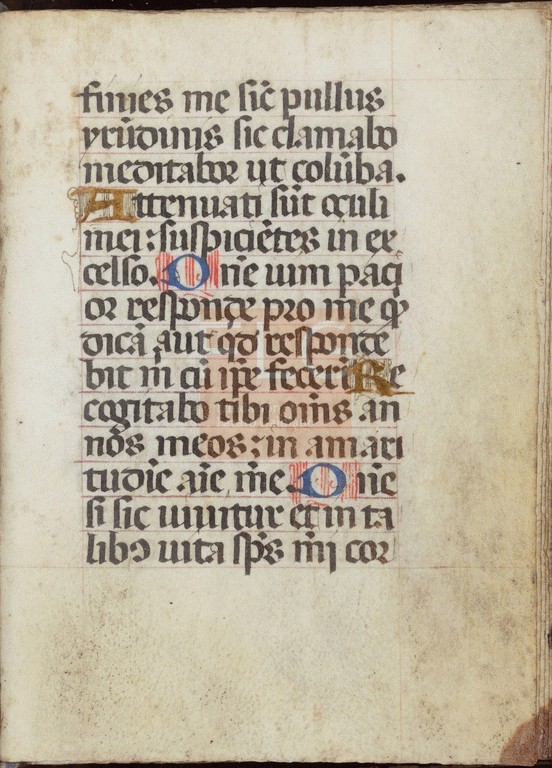 finies me sic̄ pullus
yrūdinis sic clamabo
meditabor ut colūba.
Attenuati sūt oculi
mei: suspiciētes in ex
celso. Dn̄e uim paci
or responde pro me q̄
dicā aut qd̄ responde
bit m̄ cū ip̄e fecerit Re
cogitabo tibi om̄s an
nos meos: in amari
tudīe aīe m̄e. Dn̄e
si sic uiuitur et in ta
libꝰ uita sp̄s m̄i cor